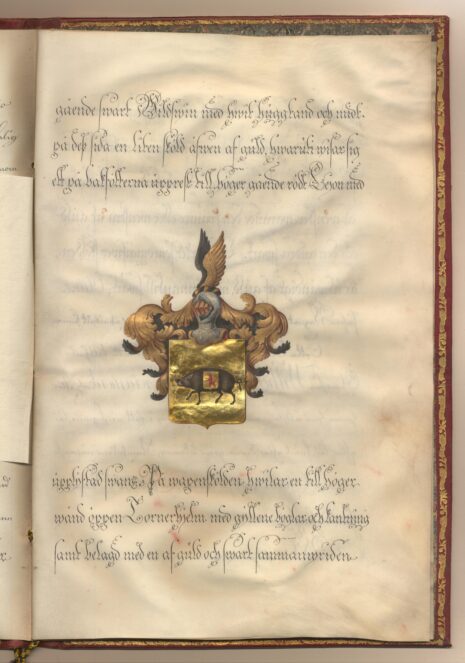 gående swart Wildswin med hwit huggtand och midt
på dess sida en liten sköld äfwen af guld, hwaruti wisar sig
ett på bakfötterna upprest till höger gående rödt Leijon med
upplyftad swans. På wapenskölden hwilar en till höger
wänd öppen Tornerhjelm med gyllene byglar och kantning
samt belagd med en af guld och swart sammanwriden